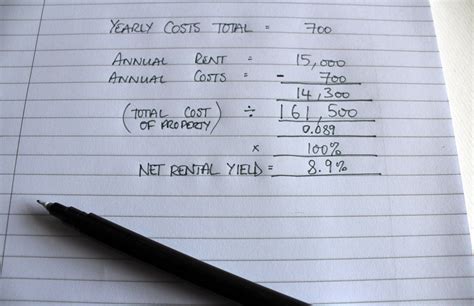 YEARLY COSTS TOTAL = 700
ANNUAL RENT = 15,000
ANNUAL COSTS = - 700
14,300
(TOTAL COST OF PROPERTY) ÷ 161,500
0.089
x 100%
NET RENTAL YIELD = 8.9%